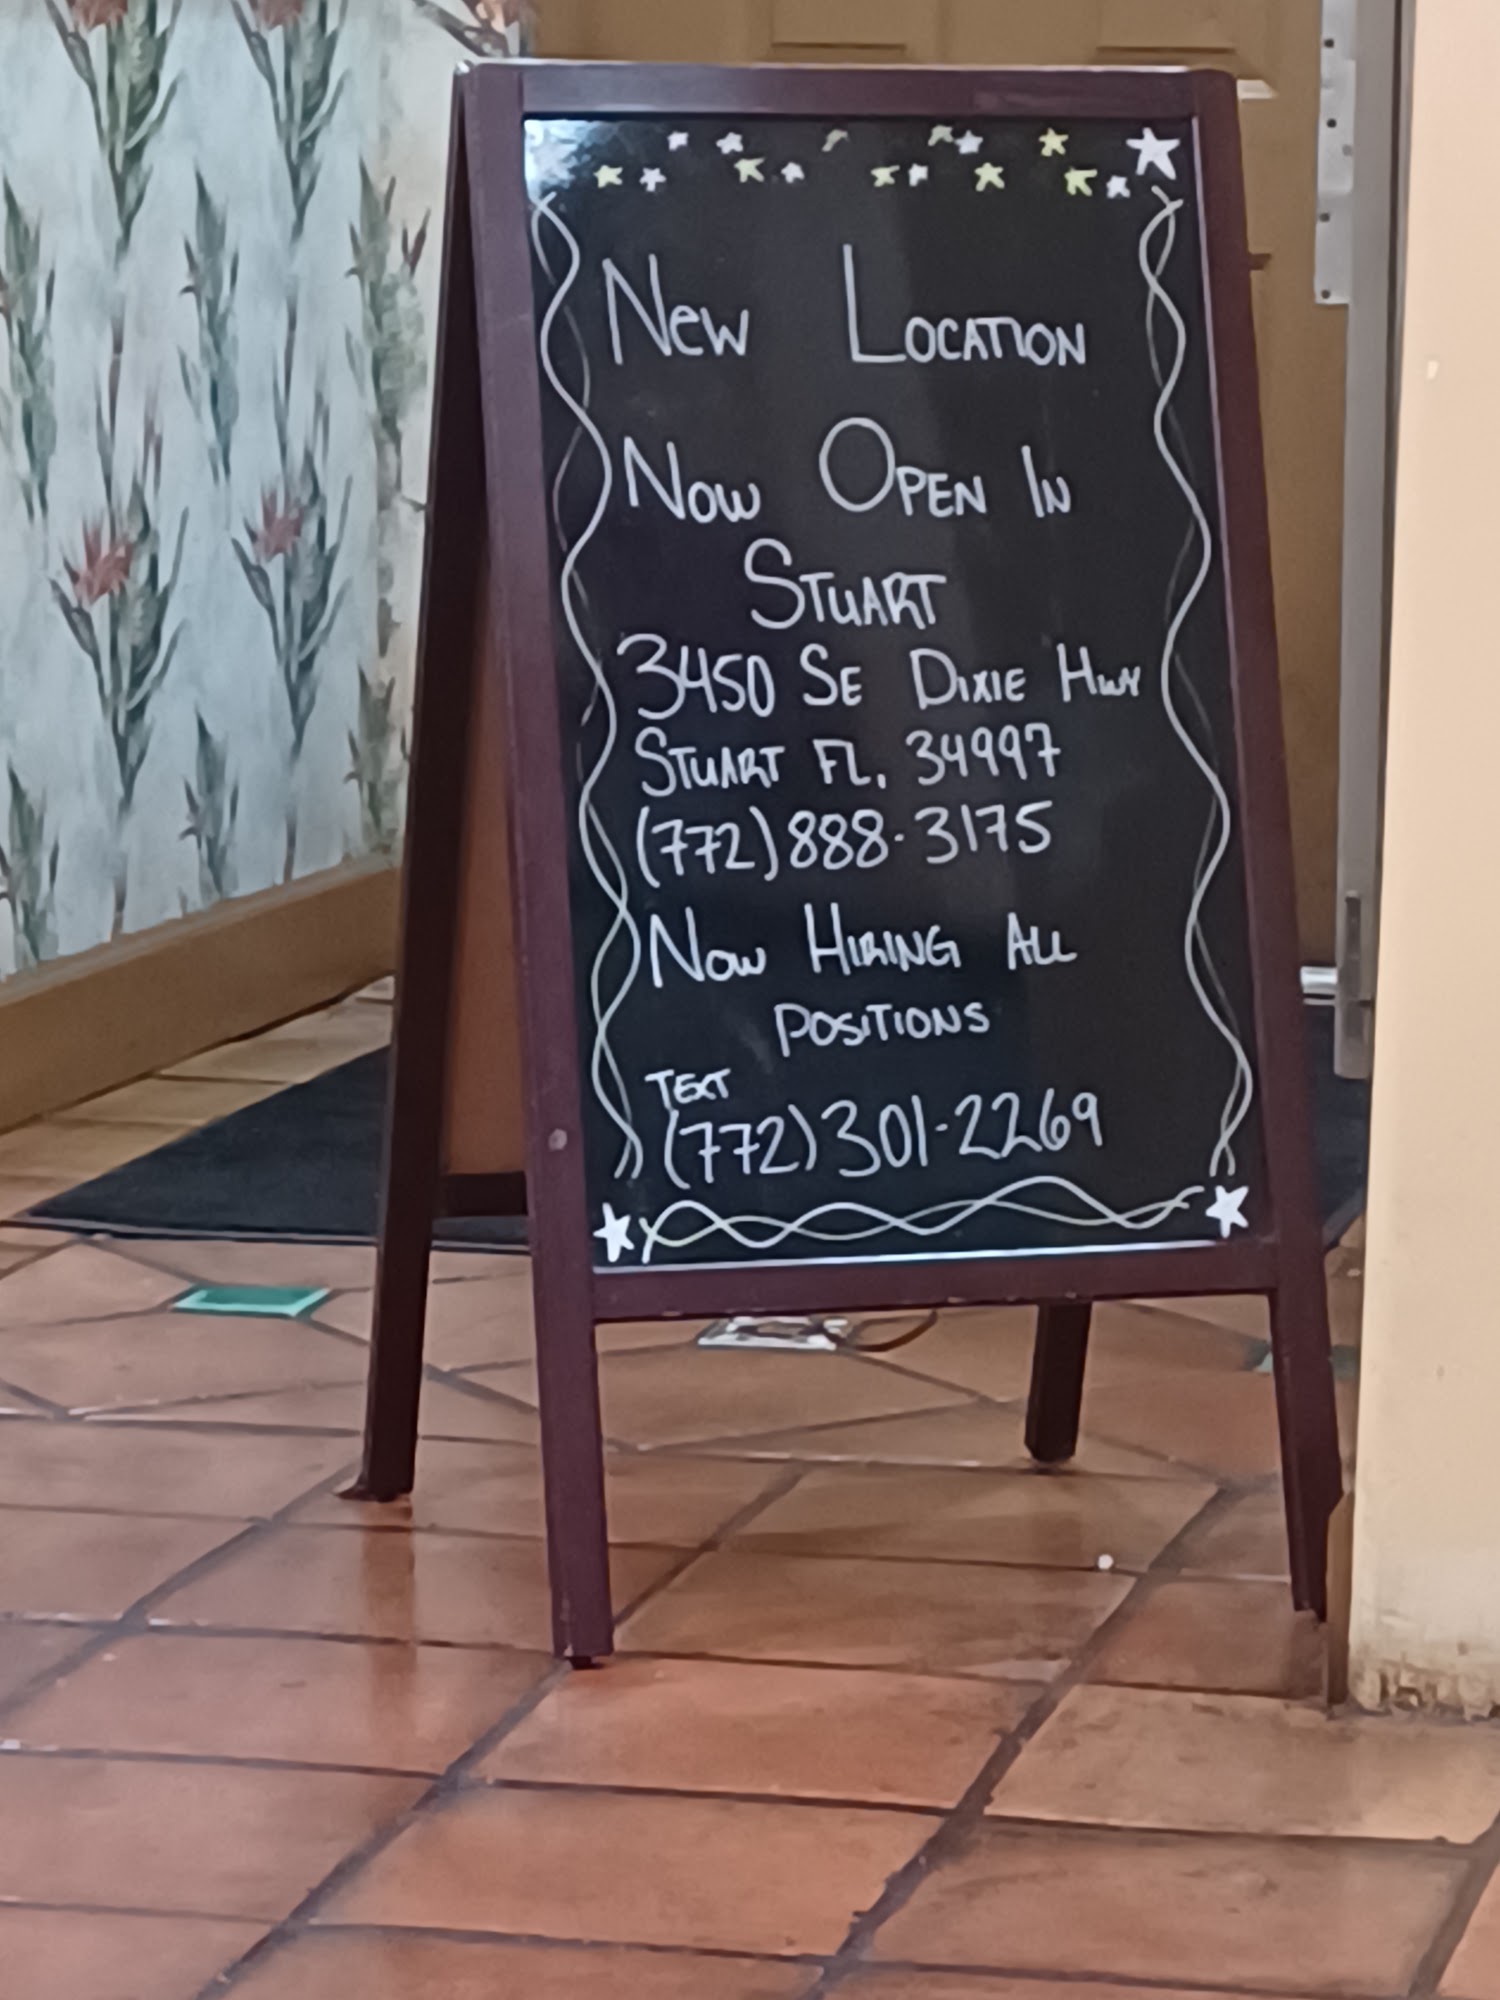 New Location
Now Open In
Stuart
3450 SE Dixie Hwy
Stuart FL. 34997
(772) 888-3175
Now Hiring All
Positions
Text
(772) 301-2269